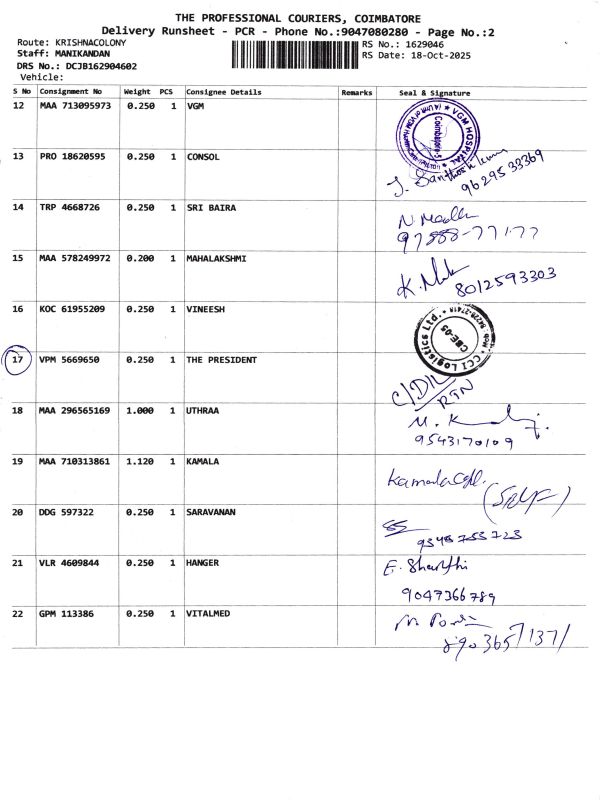 THE PROFESSIONAL COURIERS, COIMBATORE
Delivery Runsheet - PCR - Phone No.:9047080280 - Page No.:2
Route: KRISHNACOLONY RS No.: 1629046
Staff: MANIKANDAN RS Date: 18-Oct-2025
DRS No.: DCJB162904602
Vehicle:
S No Consignment No Weight PCS Consignee Details Remarks Seal & Signature
12 MAA 713095973 0.250 1 VGM
VGM HOSPITAL
Coimbatore-5
13 PRO 18620595 0.250 1 CONSOL
J. Santhosh Kumar
9629533369
14 TRP 4668726 0.250 1 SRI BAIRA
97888-77177
15 MAA 578249972 0.200 1 MAHALAKSHMI
8012593303
16 KOC 61955209 0.250 1 VINEESH
CCI Logistics Ltd.
CBE-05
17 VPM 5669650 0.250 1 THE PRESIDENT
RTN
18 MAA 296565169 1.000 1 UTHRAA
9543170109
19 MAA 710313861 1.120 1 KAMALA
(SELF)
20 DDG 597322 0.250 1 SARAVANAN
9348753723
21 VLR 4609844 0.250 1 HANGER
E. Sharthi
9047366789
22 GPM 113386 0.250 1 VITALMED
8903657137/